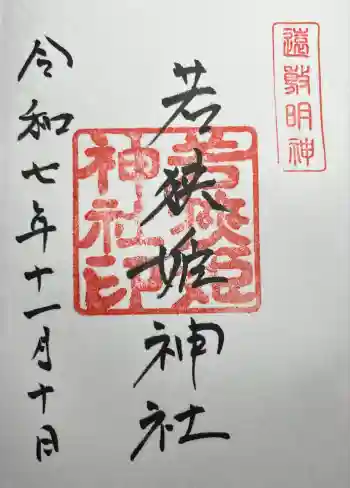 遠敷明神
若狭姫神社
若狭姫
神社印
令和七年十一月十日